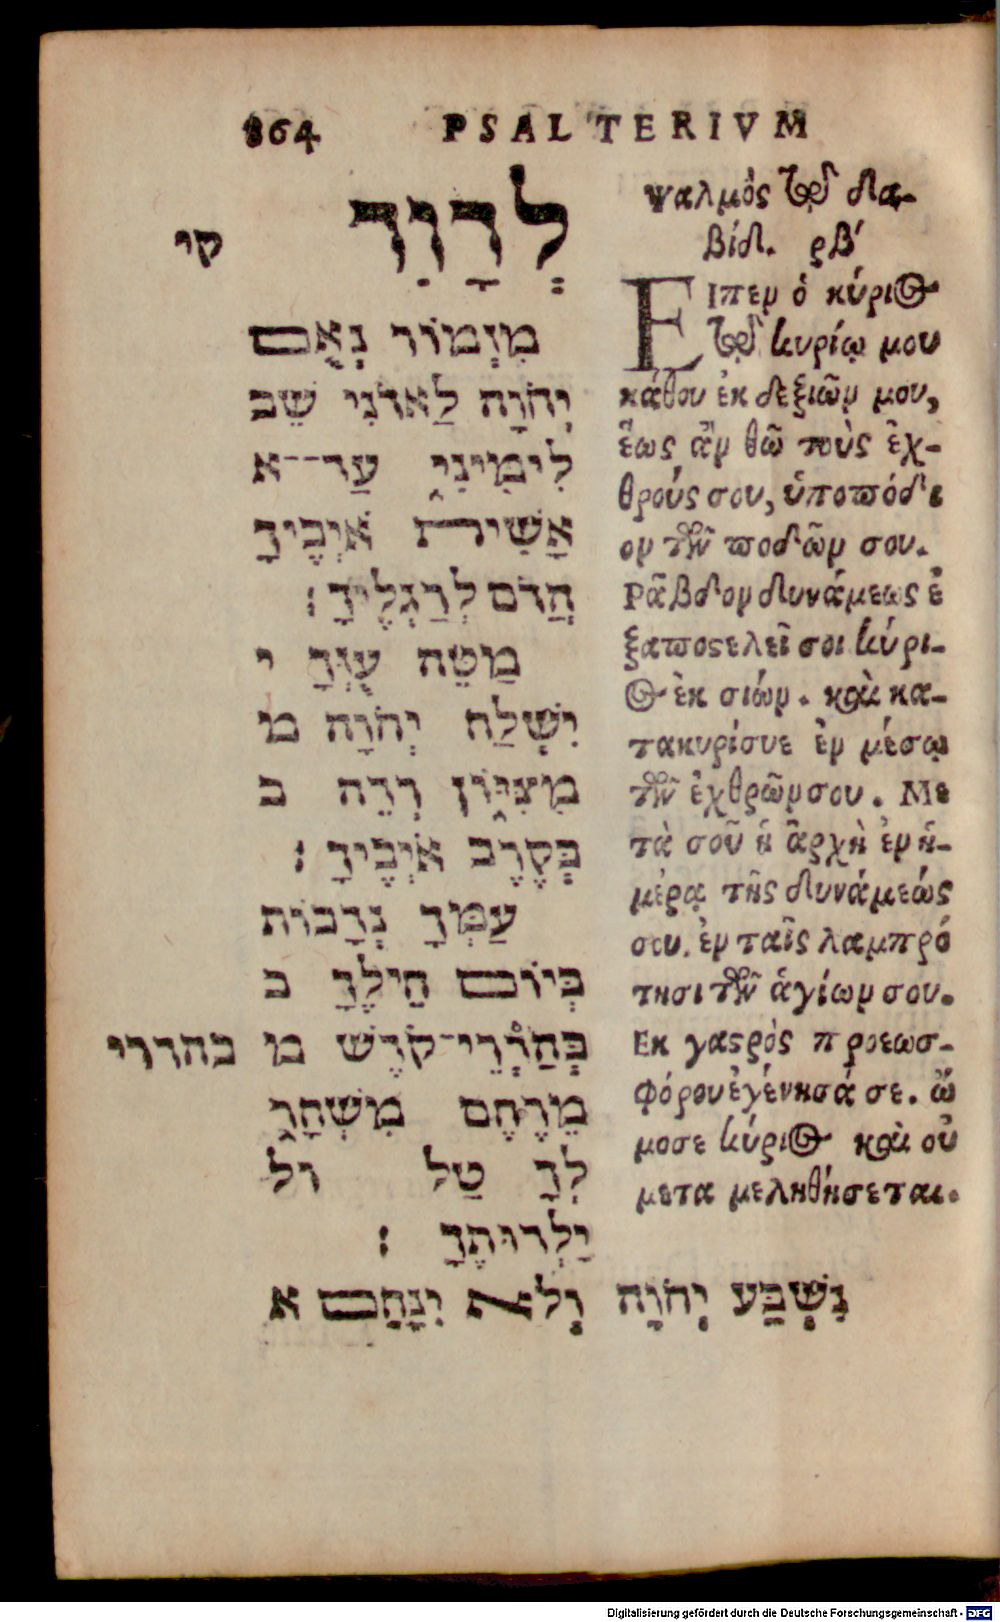 864 PSALTERIVM
קי
לְדָוִד
מִזְמוֹר נְאֻם
יְהֹוָה לַאדֹנִי שֵׁב
לִימִינִי עַד־־א
אָשִׁית אֹיְבֶיךָ
הֲדֹם לְרַגְלֶיךָ׃
מַטֵּה עֻזְּךָ י
יִשְׁלַח יְהֹוָה מ
מִצִּיּוֹן רְדֵה ב
בְּקֶרֶב אֹיְבֶיךָ׃
עַמְּךָ נְדָבוֹת
בְּיוֹם חֵילֶךָ ב
בְּהַרְרֵי־קֹדֶשׁ מ בהדרי
מֵרֶחֶם מִשְׁחָר
לְךָ טַל יל
יַלְדוּתֶךָ׃
נִשְׁבַּע יְהֹוָה וְלֹא יִנָּחֵם א
Ψαλμὸς τῷ Δα-
βίδ. ρβ´
Εἶπεν ὁ κύριος
τῷ κυρίῳ μου
κάθου ἐκ δεξιῶν μου,
ἕως ἂν θῶ τοὺς ἐχ-
θρούς σου, ὑποπόδι
ον τῶν ποδῶν σου.
Ρᾶβδον δυνάμεως ἐ
ξαποστελεῖ σοι κύρι-
ος ἐκ σιών. καὶ κα-
τακυρίευε ἐν μέσῳ
τῶν ἐχθρῶν σου. Με
τὰ σοῦ ἡ ἀρχὴ ἐν ἡ-
μέρᾳ τῆς δυνάμεώς
σου. ἐν ταῖς λαμπρό
τησι τῶν ἁγίων σου.
Εκ γαστρὸς προεωσ-
φόρου ἐγέννησά σε. ὤ
μοσε κύριος καὶ οὐ
μετα μεληθήσεται.
Digitalisierung gefördert durch die Deutsche Forschungsgemeinschaft - DFG